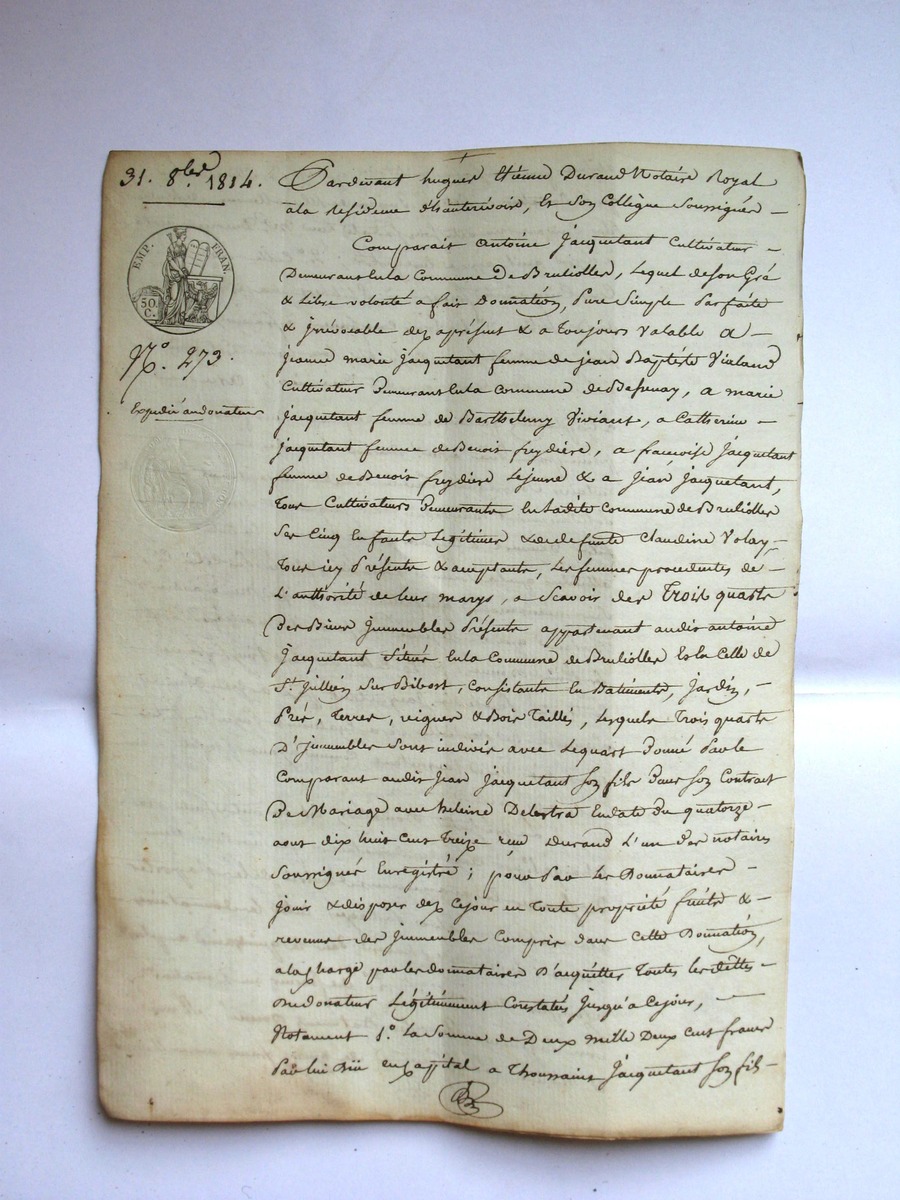 31. 8.bre 1814.
EMP. FRAN.
50.
C.
N.o 273.
Expédié au donateur
Pardevant hugues Etienne Durand Notaire Royal
ala Résidence d'hauterivoire, Et Son Collègue Soussignés –
Comparait Antoine Jacquetant Cultivateur –
Demeurant En la Commune De Brulioller, Lequel de son Gré
& Libre volonté a fait Donnation, Pure Simple Parfaite
& Irrévocable dez aprésent & a Toujours Valable a –
jeanne marie jacquetant femme de jean Baptiste Vialand
Cultivateur Demeurant En la Commune de Bessenay, a marie
jacquetant femme de Barthelemy Viviant, a Catherine –
jacquetant femme de Benoit freydiere, a francoise Jacquetant
femme de Benoit freydiere Lejeune & a Jean Jacquetant,
Tous Cultivateurs Demeurants En Ladite Commune de Brulioller
Ses Cinq Enfants Légitimes & de defunte Claudine Volay,
Tous icy Présents & acceptants, Les femmes procedentes de –
L'authorité de leur marys, a Scavoir des Trois quarts
Des Biens Immeubles Présents appartenant audit antoine
Jacquetant Situés En la Commune de Brulioller Et En Celle de
St. Jullien Sur Bibost, Consistants En Batiments, Jardin, –
Pré, Terres, vignes & Bois Taillés, Lesquels Trois quarts
D'Immeubles Sont indivis avec Lequart Donné Par le
Comparant audit Jean Jacquetant Son fils Dans Son Contrat
De Mariage avec heleine Delestra En date du quatorze –
aout dix huit Cent Treize reçu Durand L'un des notaires
Soussignés Enregistré ; pour Par Les Donnataires –
Jouir & disposer dez Cejour en Toute propriété fruits & –
revenus des Immeubles Compris dans Cette Donnation,
ala Charge par les donnataires D'acquitter Toutes les dettes –
Du donateur Légitimement Constatés Jusqu'a Cejour, –
Notament 1.o La Somme de Deux mille Deux cent francs
Par lui düe en Capital a Thoussaint Jacquetant Son fils –